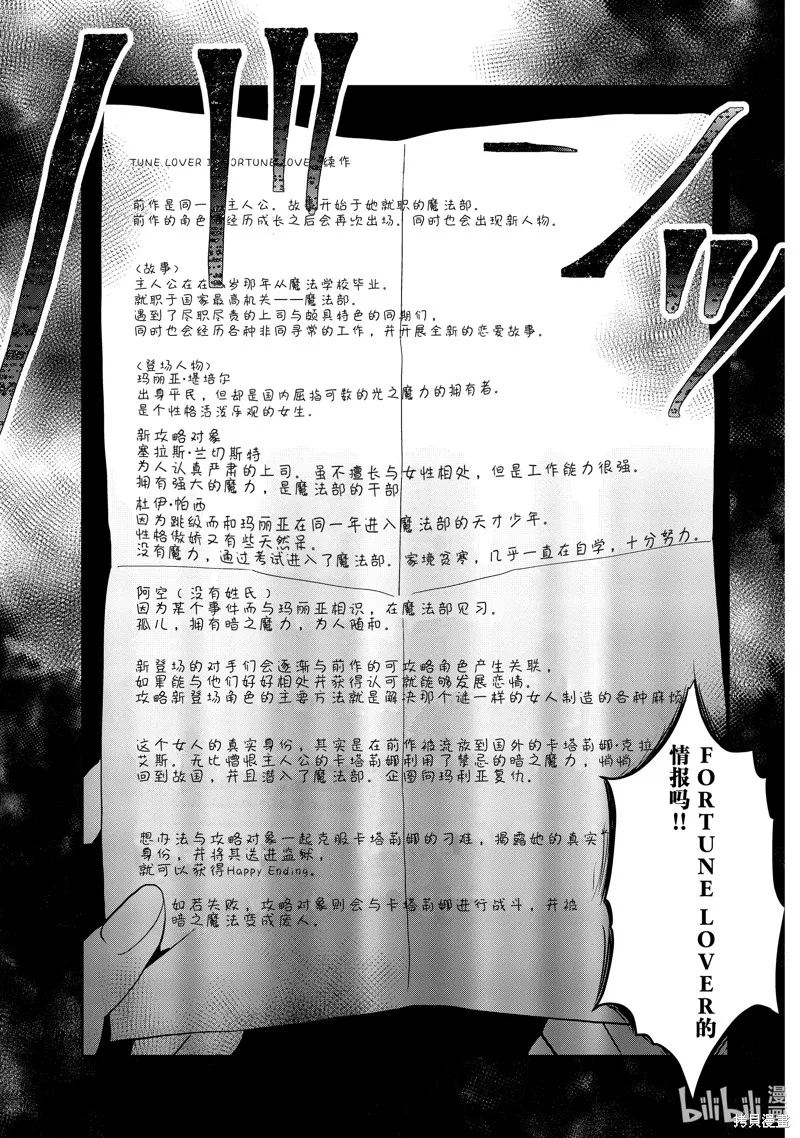 TUNE LOVER I ORTUNE LOVE 续作
前作是同一 主人公。故事开始于她就职的魔法部。
前作的角色 经历成长之后会再次出场。同时也会出现新人物。
〈故事〉
主人公在在 岁那年从魔法学校毕业。
就职于国家最高机关——魔法部。
遇到了尽职尽责的上司与颇具特色的同期们，
同时也会经历各种非同寻常的工作，并开展全新的恋爱故事。
〈登场人物〉
玛丽亚·堤培尔
出身平民，但却是国内屈指可数的光之魔力的拥有者。
是个性格活泼乐观的女生。
新攻略对象
塞拉斯·兰切斯特
为人认真严肃的上司。虽不擅长与女性相处，但是工作能力很强。
拥有强大的魔力，是魔法部的干部
杜伊·帕西
因为跳级而和玛丽亚在同一年进入魔法部的天才少年。
性格傲娇又有些天然呆。
没有魔力，通过考试进入了魔法部。家境贫寒，几乎一直在自学，十分努力。
阿空（没有姓氏）
因为某个事件而与玛丽亚相识，在魔法部见习。
孤儿，拥有暗之魔力，为人随和。
新登场的对手们会逐渐与前作的可攻略角色产生关联，
如果能与他们好好相处并获得认可就能够发展恋情。
攻略新登场角色的主要方法就是解决那个谜一样的女人制造的各种麻烦
这个女人的真实身份，其实是在前作被流放到国外的卡塔莉娜·克拉
艾斯。无比憎恨主人公的卡塔莉娜利用了禁忌的暗之魔力，悄悄
回到故国，并且潜入了魔法部。企图向玛利亚复仇。
想办法与攻略对象一起克服卡塔莉娜的刁难，揭露她的真实
身份，并将其送进监狱，
就可以获得Happy Ending。
如若失败，攻略对象则会与卡塔莉娜进行战斗，并被
暗之魔法变成废人。
FORTUNE LOVER的
情报吗!!
bilibili 漫画
拷貝漫畫